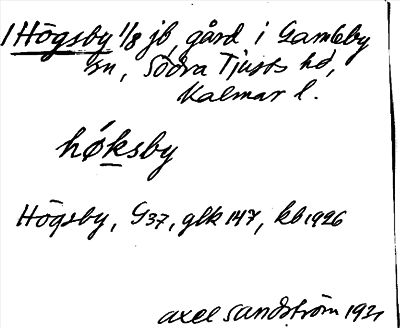 1 Högsby 1/8 jb, gård i Gamleby
sn, Södra Tjusts hd,
Kalmar l.
høksby
Högsby, G37, glk 147, kb 1926
Axel Sandström 1931